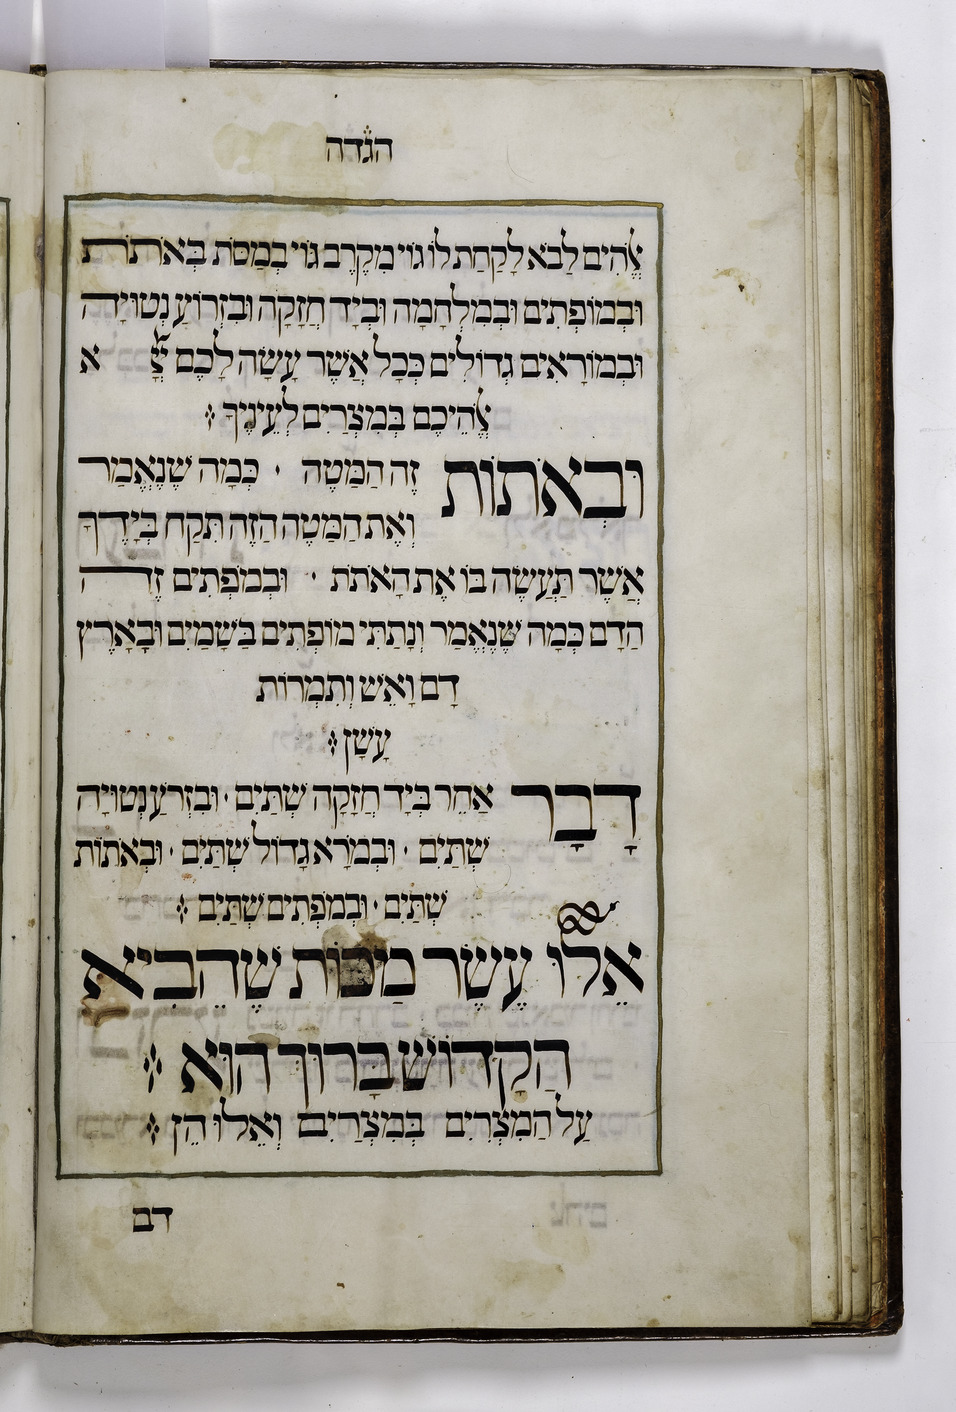 הגדה
אֱלֹהִים לָבֹא לָקַחַת לוֹ גוֹי מִקֶרֶב גּוֹי בְמַסֹּת בְּאֹתוֹת
וּבְמוֹפְתִים וּבְמִלְחָמָה וּבְיָד חֲזָקָה וּבִזְרוֹעַ נְטוּיָה
וּבְמוֹרָאִים גְדוֹלִים כְּכָל אֲשֶׁר עָשָׂה לָכֶם
אֱלֹהֵיכֶם בְּמִצְרַיִם לְעֵינֶיךָ
וּבְאֹתוֹת זֶה הַמַּטֶּה · כְּמָה שֶׁנֶּאֱמַר
וְאֶת הַמַּטֶּה הַזֶּה תִּקַּח בְּיָדֶךָ
אֲשֶׁר תַּעֲשֶׂה בּוֹ אֶת הָאֹתֹת · וּבְמֹפְתִים זֶה
הַדָּם כְּמָה שֶׁנֶּאֱמַר וְנָתַתִּי מוֹפְתִים בַּשָּׁמַיִם וּבָאָרֶץ
דָם וָאֵשׁ וְתִמְרוֹת
עָשָׁן
דָבָר אַחֵר בְּיָד חֲזָקָה שְׁתַּיִם · וּבִזְרֹעַ נְטוּיָה
שְׁתַּיִם · וּבְמֹרָא גָדוֹל שְׁתַּיִם · וּבְאֹתוֹת
שְׁתַּיִם · וּבְמֹפְתִים שְׁתַּיִם
אֵלוּ עֶשֶׂר מַכּוֹת שֶׁהֵבִיא
הַקָּדוֹשׁ בָּרוּךְ הוּא
עַל הַמִצְרִיִם בְּמִצְרַיִם וְאֵלוּ הֵן
דם